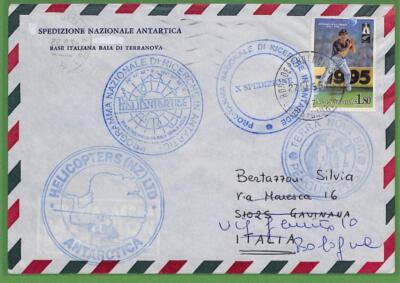 SPEDIZIONE NAZIONALE ANTARTICA
BASE ITALIANA BAIA DI TERRANOVA
PROGRAMMA NAZIONALE DI RICERCHE IN ANTARTIDE
ITALIANTARTIDE
PROGRAMMA NAZIONALE DI RICERCHE IN ANTARTIDE
X SPEDIZ
1995
1.80
TERRA NOVA BAY
HELICOPTERS (NZ) LTD
ANTARCTICA
Bertazzoni Silvia
Via Maresca 16
51025 GAVINANA
ITALIA
Bologna